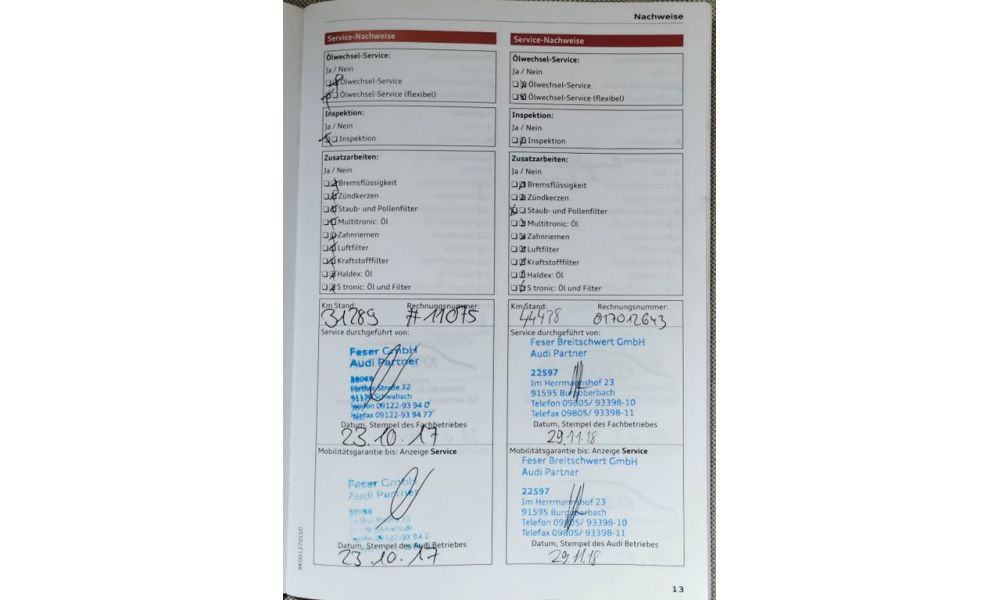 Nachweise
Service-Nachweise
Ölwechsel-Service:
Ja / Nein
Ölwechsel-Service
Ölwechsel-Service (flexibel)
Inspektion:
Ja / Nein
Inspektion
Zusatzarbeiten:
Ja / Nein
Bremsflüssigkeit
Zündkerzen
Staub- und Pollenfilter
Multitronic: Öl
Zahnriemen
Luftfilter
Kraftstofffilter
Haldex: Öl
S tronic: Öl und Filter
Km Stand: Rechnungsnummer:
31289 #11075
Service durchgeführt von:
Feser GmbH
Audi Partner
Straße 32
Schwabach
Telefon 09122-93 94 0
Telefax 09122-93 94 77
Datum, Stempel des Fachbetriebes
23.10.17
Mobilitätsgarantie bis: Anzeige Service
Feser GmbH
Audi Partner
Datum, Stempel des Audi Betriebes
23.10.17
Service-Nachweise
Ölwechsel-Service:
Ja / Nein
Ölwechsel-Service
Ölwechsel-Service (flexibel)
Inspektion:
Ja / Nein
Inspektion
Zusatzarbeiten:
Ja / Nein
Bremsflüssigkeit
Zündkerzen
Staub- und Pollenfilter
Multitronic: Öl
Zahnriemen
Luftfilter
Kraftstofffilter
Haldex: Öl
S tronic: Öl und Filter
Km Stand: Rechnungsnummer:
44478 017012643
Service durchgeführt von:
Feser Breitschwert GmbH
Audi Partner
22597
Im Herrmannshof 23
91595 Burgoberbach
Telefon 09805/ 93398-10
Telefax 09805/ 93398-11
Datum, Stempel des Fachbetriebes
29.11.18
Mobilitätsgarantie bis: Anzeige Service
Feser Breitschwert GmbH
Audi Partner
22597
Im Herrmannshof 23
91595 Burgoberbach
Telefon 09805/ 93398-10
Telefax 09805/ 93398-11
Datum, Stempel des Audi Betriebes
29.11.18
13